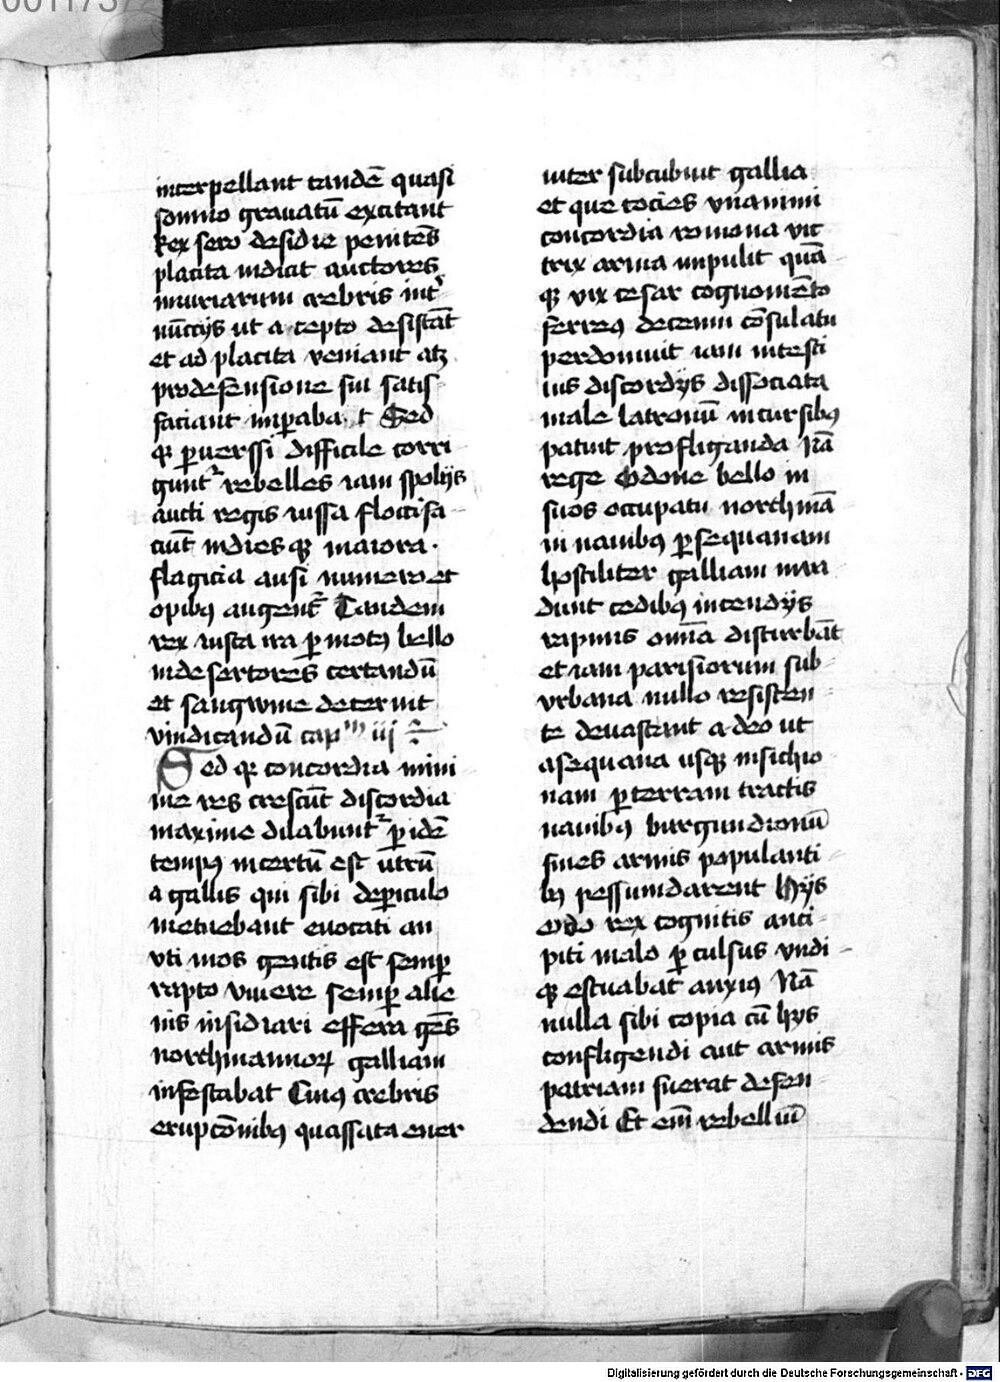 interpellant tandē quasi
somno grauatū excitant
Rex sero desidie penitēs
placita indicit auctores
iniuriarum crebris int᷑
nūccijs ut a cepto desistāt
et ad placita veniant atꝫ
prodefensione sui satis-
faciant imꝑabat Sed
qꝛ ꝑuerssi difficile corri-
gunt᷑ rebelles iam spolijs
aucti regis iussa floccifa-
ciūt indies qꝫ maiora
flagicia ausi numero et
opibꝰ augent᷑ Tandem
rex iusta ira ꝑmotꝰ bello
indesertores certandū
et sangwine decernit
vindicandū capᵐ iij
Sed qꝛ concordia mini
me res crescūt discordia
maxime dilabunt᷑ ꝑ idē
tempꝰ incertū est utrū
a gallis qui sibi deꝑiculo
metuebant euocati an
vti mos gentis est semꝑ
rapto viuere semꝑ alie
nis insidiari effera gēs
northmannoꝝ galliam
infestabat Cuiꝰ crebris
erupcōnibꝰ quassata ener
uiter subcubuit gallia
et que tocies vnanimi
concordia romana vic
trix arma impulit quā-
qꝫ vix cesar cognomēto
ferreꝰ decenni cōsulatu
perdomuit iam intesti
nis discordijs dissociata
male latronū incursibꝰ
patuit profliganda Nā
rege Odone bello in
suos occupatu northmā
ni nauibꝰ ꝑ sequanam
hostiliter galliam inua
dunt cedibꝰ incendijs
rapinis om̄ia disturbāt
et iam parisiorum sub-
vrbana nullo resisten-
te deuastant adeo ut
asequana usqꝫ insichio-
nam ꝑ terram tractis
nauibꝰ burgundionū
fines armis populanti
bꝰ pessumdarent Hijs
odo rex cognitis anci-
piti malo ꝑculsus vndi-
qꝫ estuabat anxiꝰ Nā
nulla sibi copia cū hijs
confligendi aut armis
patriam fuerat defen-
dendi Et em̄ rebelliū
Digitalisierung gefördert durch die Deutsche Forschungsgemeinschaft - DFG